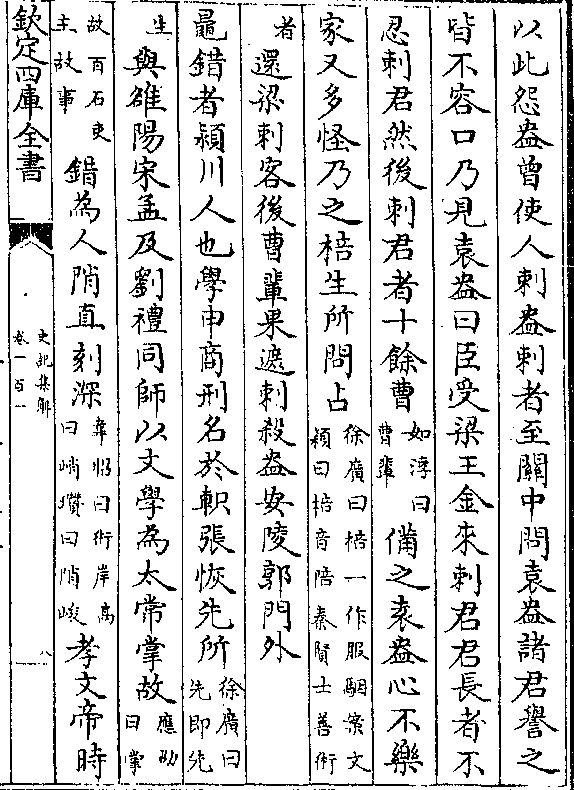 以此怨盎曾使人刺盎刺者至關中問袁盎諸君譽之
皆不容口乃見袁盎曰臣受梁王金來刺君君長者不
忍刺君然後刺君者十餘曹如淳曰曹輩備之袁盎心不樂
家又多怪乃之棓生所問占徐廣曰棓一作服駰案文頴曰棓音陪秦賢士善術
者還梁刺客後曹輩果遮刺殺盎安陵郭門外
鼂錯者頴川人也學申商刑名於軹張恢先所徐廣曰先即先
生與雒陽宋孟及劉禮同師以文學為太常掌故應劭曰掌
故百石吏主故事錯為人陗直刻深韋昭曰術岸高曰峭瓚曰陗峻孝文帝時
欽定四庫全書
史記集解
卷一百一
八